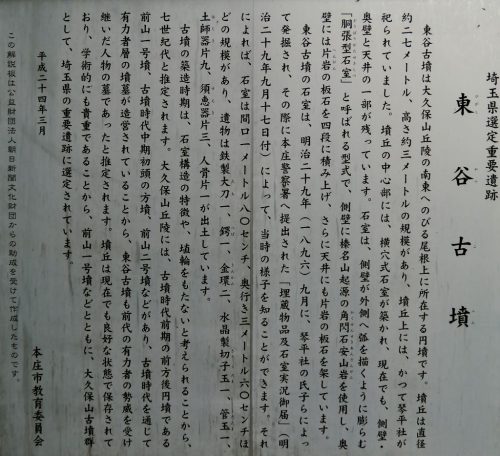 埼玉県選定重要遺跡
東谷古墳
東谷古墳は大久保山丘陵の南東へのびる尾根上に所在する円墳です。墳丘は直径
約二七メートル、高さ約三メートルの規模があり、墳丘上には、かつて琴平社が
祀られていました。墳丘の中心部には、横穴式石室が築かれ、現在でも、側壁・
奥壁と天井の一部が残っています。石室は、側壁が外側へ弧を描くように膨らむ
「胴張型石室」と呼ばれる型式で、側壁に榛名山起源の角閃石安山岩を使用し、奥
壁には片岩の板石を四段に積み上げ、さらに天井にも片岩の板石を架しています。
東谷古墳の石室は、明治二十九年（一八九六）九月に、琴平社の氏子らによっ
て発掘され、その際に本庄警察署へ提出された「埋蔵物品及石室実況御届」（明
治二十九年九月十七日付）によって、当時の様子を知ることができます。それ
によれば、石室は間口一メートル八〇センチ、奥行き三メートル六〇センチほ
どの規模があり、遺物は鉄製大刀一、鍔一、金環二、水晶製切子玉一、管玉一、
土師器片九、須恵器片三、人骨片一が出土しています。
古墳の築造時期は、石室構造の特徴や、埴輪をもたないと考えられることから、
七世紀代と推定されます。大久保山丘陵には、古墳時代前期の前方後円墳である
前山一号墳、古墳時代中期初頭の方墳、前山二号墳などがあり、古墳時代を通じて
有力者層の墳墓が造営されていることから、東谷古墳も前代の有力者の勢威を受け
継いだ人物の墓であったと推定されます。墳丘は現在でも良好な状態で保存されて
おり、学術的にも貴重であることから、前山一号墳などとともに、大久保山古墳群
として、埼玉県の重要遺跡に選定されています。
平成二十四年三月
本庄市教育委員会
この解説板は公益財団法人朝日新聞文化財団からの助成を受けて作成したものです。